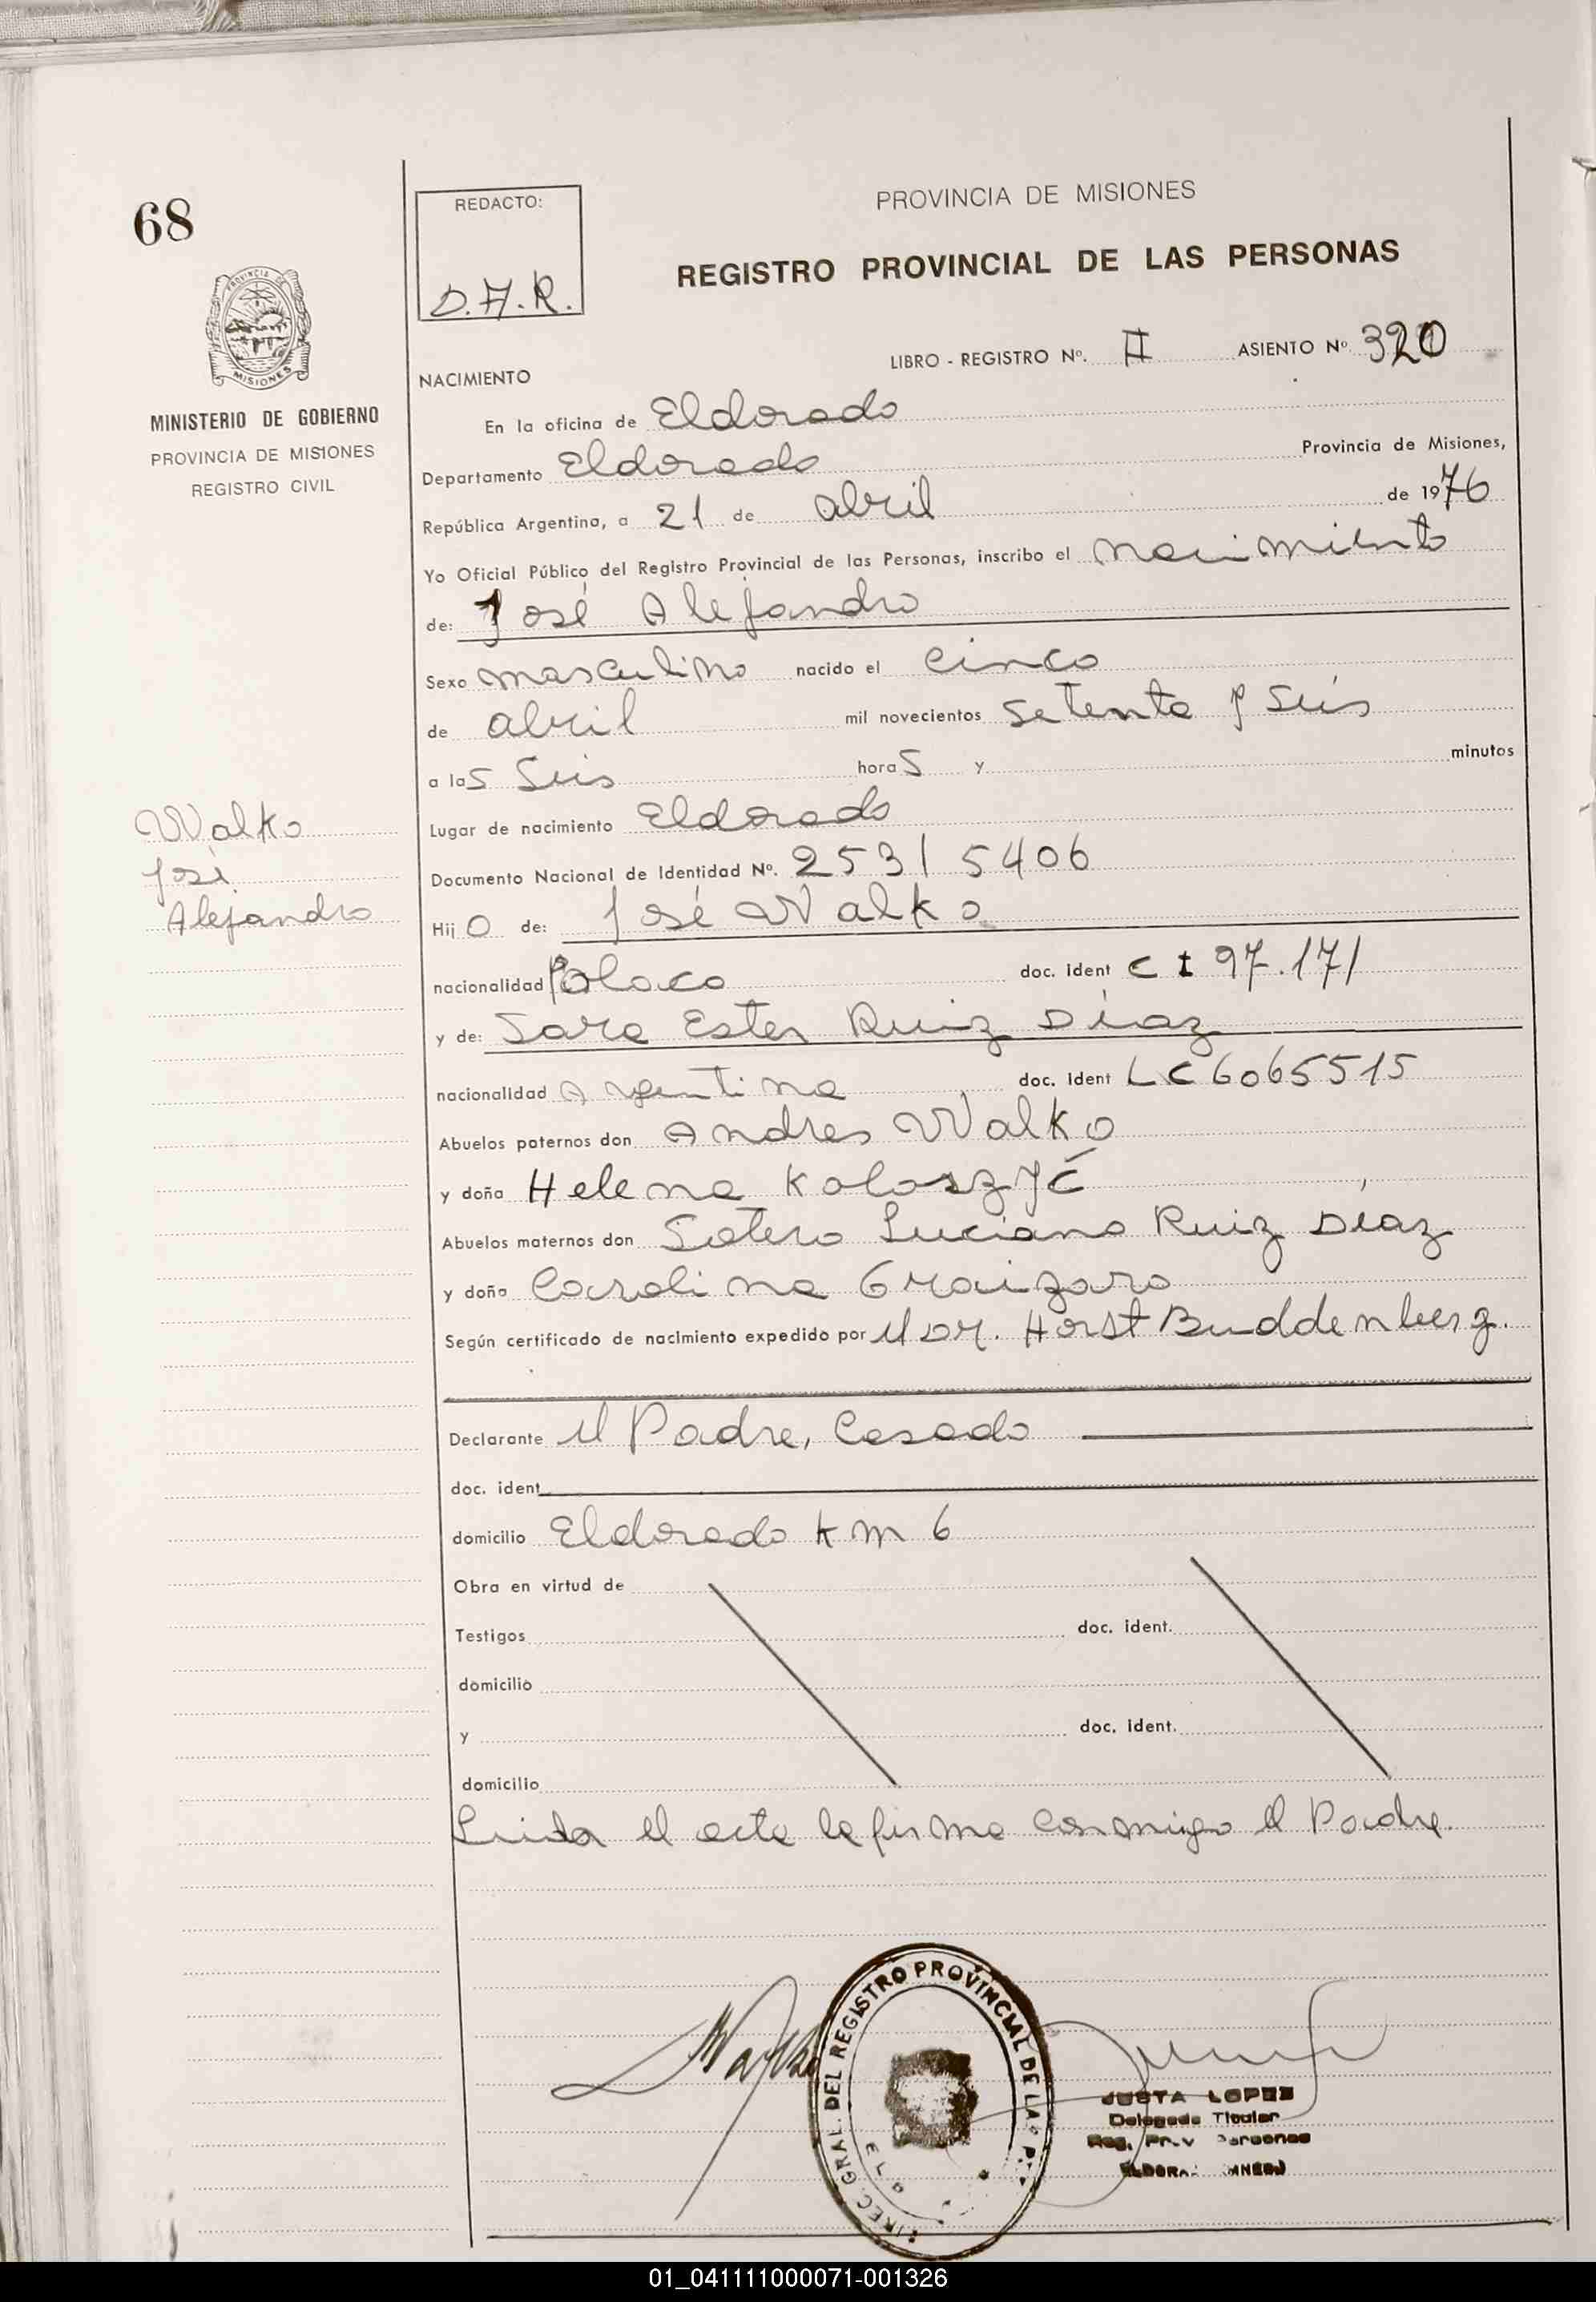 68
PROVINCIA
MISIONES
MINISTERIO DE GOBIERNO
PROVINCIA DE MISIONES
REGISTRO CIVIL
Walko
José
Alejandro
REDACTO:
D.A.R.
PROVINCIA DE MISIONES
REGISTRO PROVINCIAL DE LAS PERSONAS
LIBRO - REGISTRO Nº. II ASIENTO Nº. 320
NACIMIENTO
En la oficina de Eldorado
Departamento Eldorado Provincia de Misiones,
República Argentina, a 21 de abril de 1976
Yo Oficial Público del Registro Provincial de las Personas, inscribo el nacimiento
de: José Alejandro
Sexo masculino nacido el cinco
de abril mil novecientos setenta y seis
a las seis horas y minutos
Lugar de nacimiento Eldorado
Documento Nacional de Identidad Nº. 25315406
Hijo de: José Walko
nacionalidad Polaco doc. ident C I 97.171
y de: Sara Ester Ruiz Díaz
nacionalidad Argentina doc. ident LC 6065515
Abuelos paternos don Andres Walko
y doña Helena Koloszyć
Abuelos maternos don Sotero Luciano Ruiz Díaz
y doña Carolina
Según certificado de nacimiento expedido por el Dr. Horst Buddenberg.
Declarante el Padre, Casado
doc. ident
domicilio Eldorado km 6
Obra en virtud de
Testigos doc. ident.
domicilio
y doc. ident.
domicilio
Leida el acta la firma conmigo el Padre.
Walko
GRAL. DEL REGISTRO PROVINCIAL DE LAS
JUSTA LOPEZ
Delegada Titular
Reg.
01_041111000071-001326